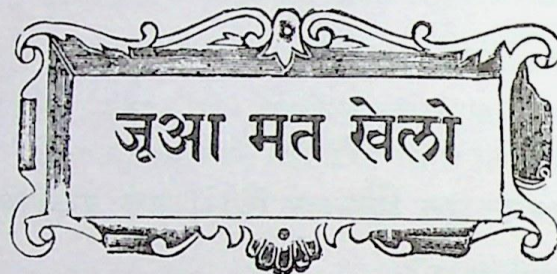 जूआ मत खेलो